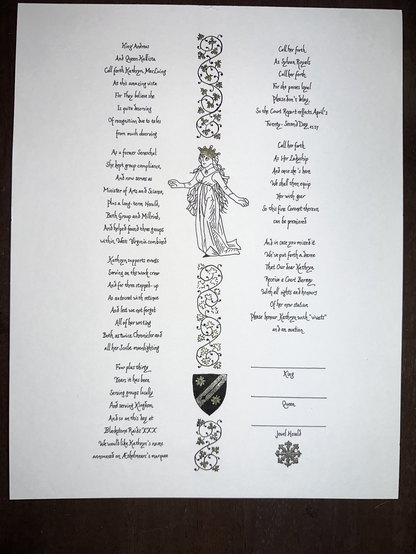 King Andreas
And Queen Kallista
Call forth Kathryn MacLuing
At this amazing vista
For They believe she
Is quite deserving
Of recognition due to tales
from much observing
As a former Seneschal
She kept group compliance,
And now serves as
Minister of Arts and Science,
Plus a long-term Health,
Both Group and Millrind,
And helped found three groups
within West Virginia combined
Kathryn supports events
Serving on the work crew
And for three stepped-up
As autocrat with retinue
And lest we not forget
All of her writing
Both as twice Chronicler and
all her Scribe moonlighting
Four plus thirty
Years it has been
Serving groups locally
And serving Kingdom,
And so on this day at
Blackstone Raids XXX
We would like Kathryn's name
announced on Æthelmearc's marquee
Call her forth,
As Sylvan Royals
Call her forth,
For she proves loyal
Please don't delay,
So the Court Report reflects April's
Twenty-Second Day,
Call her forth,
As Her Ladyship
And once she's here
We shall then equip
Her with gear
So this fine Coronet thereon
can be premiered
And in case you missed it
We've put forth a decree
That Our dear Kathryn
Receive a Court Barony
With all rights and honours
Of her new station
Please honour Kathryn with "vivats"
and an ovation.
King
Queen
Jewel Herald